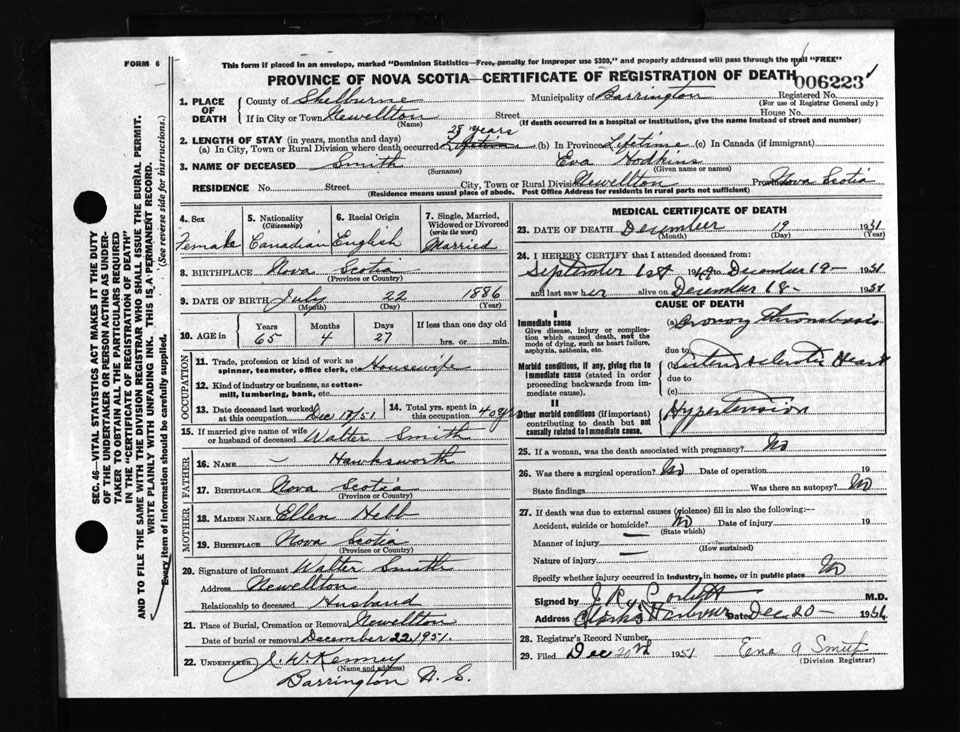 FORM 6
This form if placed in an envelope, marked "Dominion Statistics—Free, penalty for improper use $300," and properly addressed will pass through the mail "FREE"
PROVINCE OF NOVA SCOTIA—CERTIFICATE OF REGISTRATION OF DEATH
006223
Registered No.
(For use of Registrar General only)
1. PLACE OF DEATH
County of Shelburne Municipality of Barrington
If in City or Town Newellton Street House No.
(Name) (If death occurred in a hospital or institution, give the name instead of street and number)
2. LENGTH OF STAY (in years, months and days) 28 years
(a) In City, Town or Rural Division where death occurred Lifetime (b) In Province Lifetime (c) In Canada (if immigrant)
3. NAME OF DECEASED Smith Eva Hodkins
(Surname) (Given name or names)
RESIDENCE No. Street City, Town or Rural Division Newellton Province Nova Scotia
(Residence means usual place of abode. Post Office Address for residents in rural parts not sufficient)
4. Sex Female
5. Nationality (Citizenship) Canadian
6. Racial Origin English
7. Single, Married, Widowed or Divorced (write the word) Married
8. BIRTHPLACE Nova Scotia
(Province or Country)
9. DATE OF BIRTH July 22 1886
(Month) (Day) (Year)
10. AGE in Years Months Days If less than one day old
65 4 27 hrs. or min.
OCCUPATION
11. Trade, profession or kind of work as spinner, teamster, office clerk, etc. Housewife
12. Kind of industry or business, as cotton-mill, lumbering, bank, etc.
13. Date deceased last worked at this occupation Dec 18/51
14. Total yrs. spent in this occupation 40 yrs
15. If married give name of wife or husband of deceased Walter Smith
FATHER
16. NAME — Hawksworth
17. BIRTHPLACE Nova Scotia
(Province or Country)
MOTHER
18. MAIDEN NAME Ellen Hebb
19. BIRTHPLACE Nova Scotia
(Province or Country)
20. Signature of informant Walter Smith
Address Newellton
Relationship to deceased Husband
21. Place of Burial, Cremation or Removal Newellton
Date of burial or removal December 22, 1951.
22. UNDERTAKER J. W. Kenney
(Name and address)
Barrington N. S.
MEDICAL CERTIFICATE OF DEATH
23. DATE OF DEATH December 19 1951
(Month) (Day) (Year)
24. I HEREBY CERTIFY that I attended deceased from:
September 1st 1949 to December 19– 1951
and last saw her alive on December 18– 1951
CAUSE OF DEATH
I
Immediate cause
Give disease, injury or complication which caused death, not the mode of dying, such as heart failure, asphyxia, asthenia, etc.
(a) Coronary thrombosis
due to
Morbid conditions, if any, giving rise to immediate cause (stated in order proceeding backwards from immediate cause).
(b) Heart
due to
(c)
II
Other morbid conditions (if important) contributing to death but not causally related to immediate cause.
Hypertension
25. If a woman, was the death associated with pregnancy? No
26. Was there a surgical operation? No Date of operation 19
State findings Was there an autopsy? No
27. If death was due to external causes (violence) fill in also the following:—
Accident, suicide or homicide? No Date of injury 19
(State which)
Manner of injury —
(How sustained)
Nature of injury —
Specify whether injury occurred in industry, in home, or in public place No
Signed by M.D.
Address Clarks Harbour Date Dec 20– 1951
28. Registrar's Record Number
29. Filed Dec 20th 1951 Ena A Smith
(Division Registrar)
SEC. 46—VITAL STATISTICS ACT MAKES IT THE DUTY
OF THE UNDERTAKER OR PERSON ACTING AS UNDER-
TAKER TO OBTAIN ALL THE PARTICULARS REQUIRED
IN THE "CERTIFICATE OF REGISTRATION OF DEATH"
AND TO FILE THE SAME WITH THE DIVISION REGISTRAR WHO SHALL ISSUE THE BURIAL PERMIT.
WRITE PLAINLY WITH UNFADING INK. THIS IS A PERMANENT RECORD.
Every item of information should be carefully supplied. (See reverse side for instructions.)